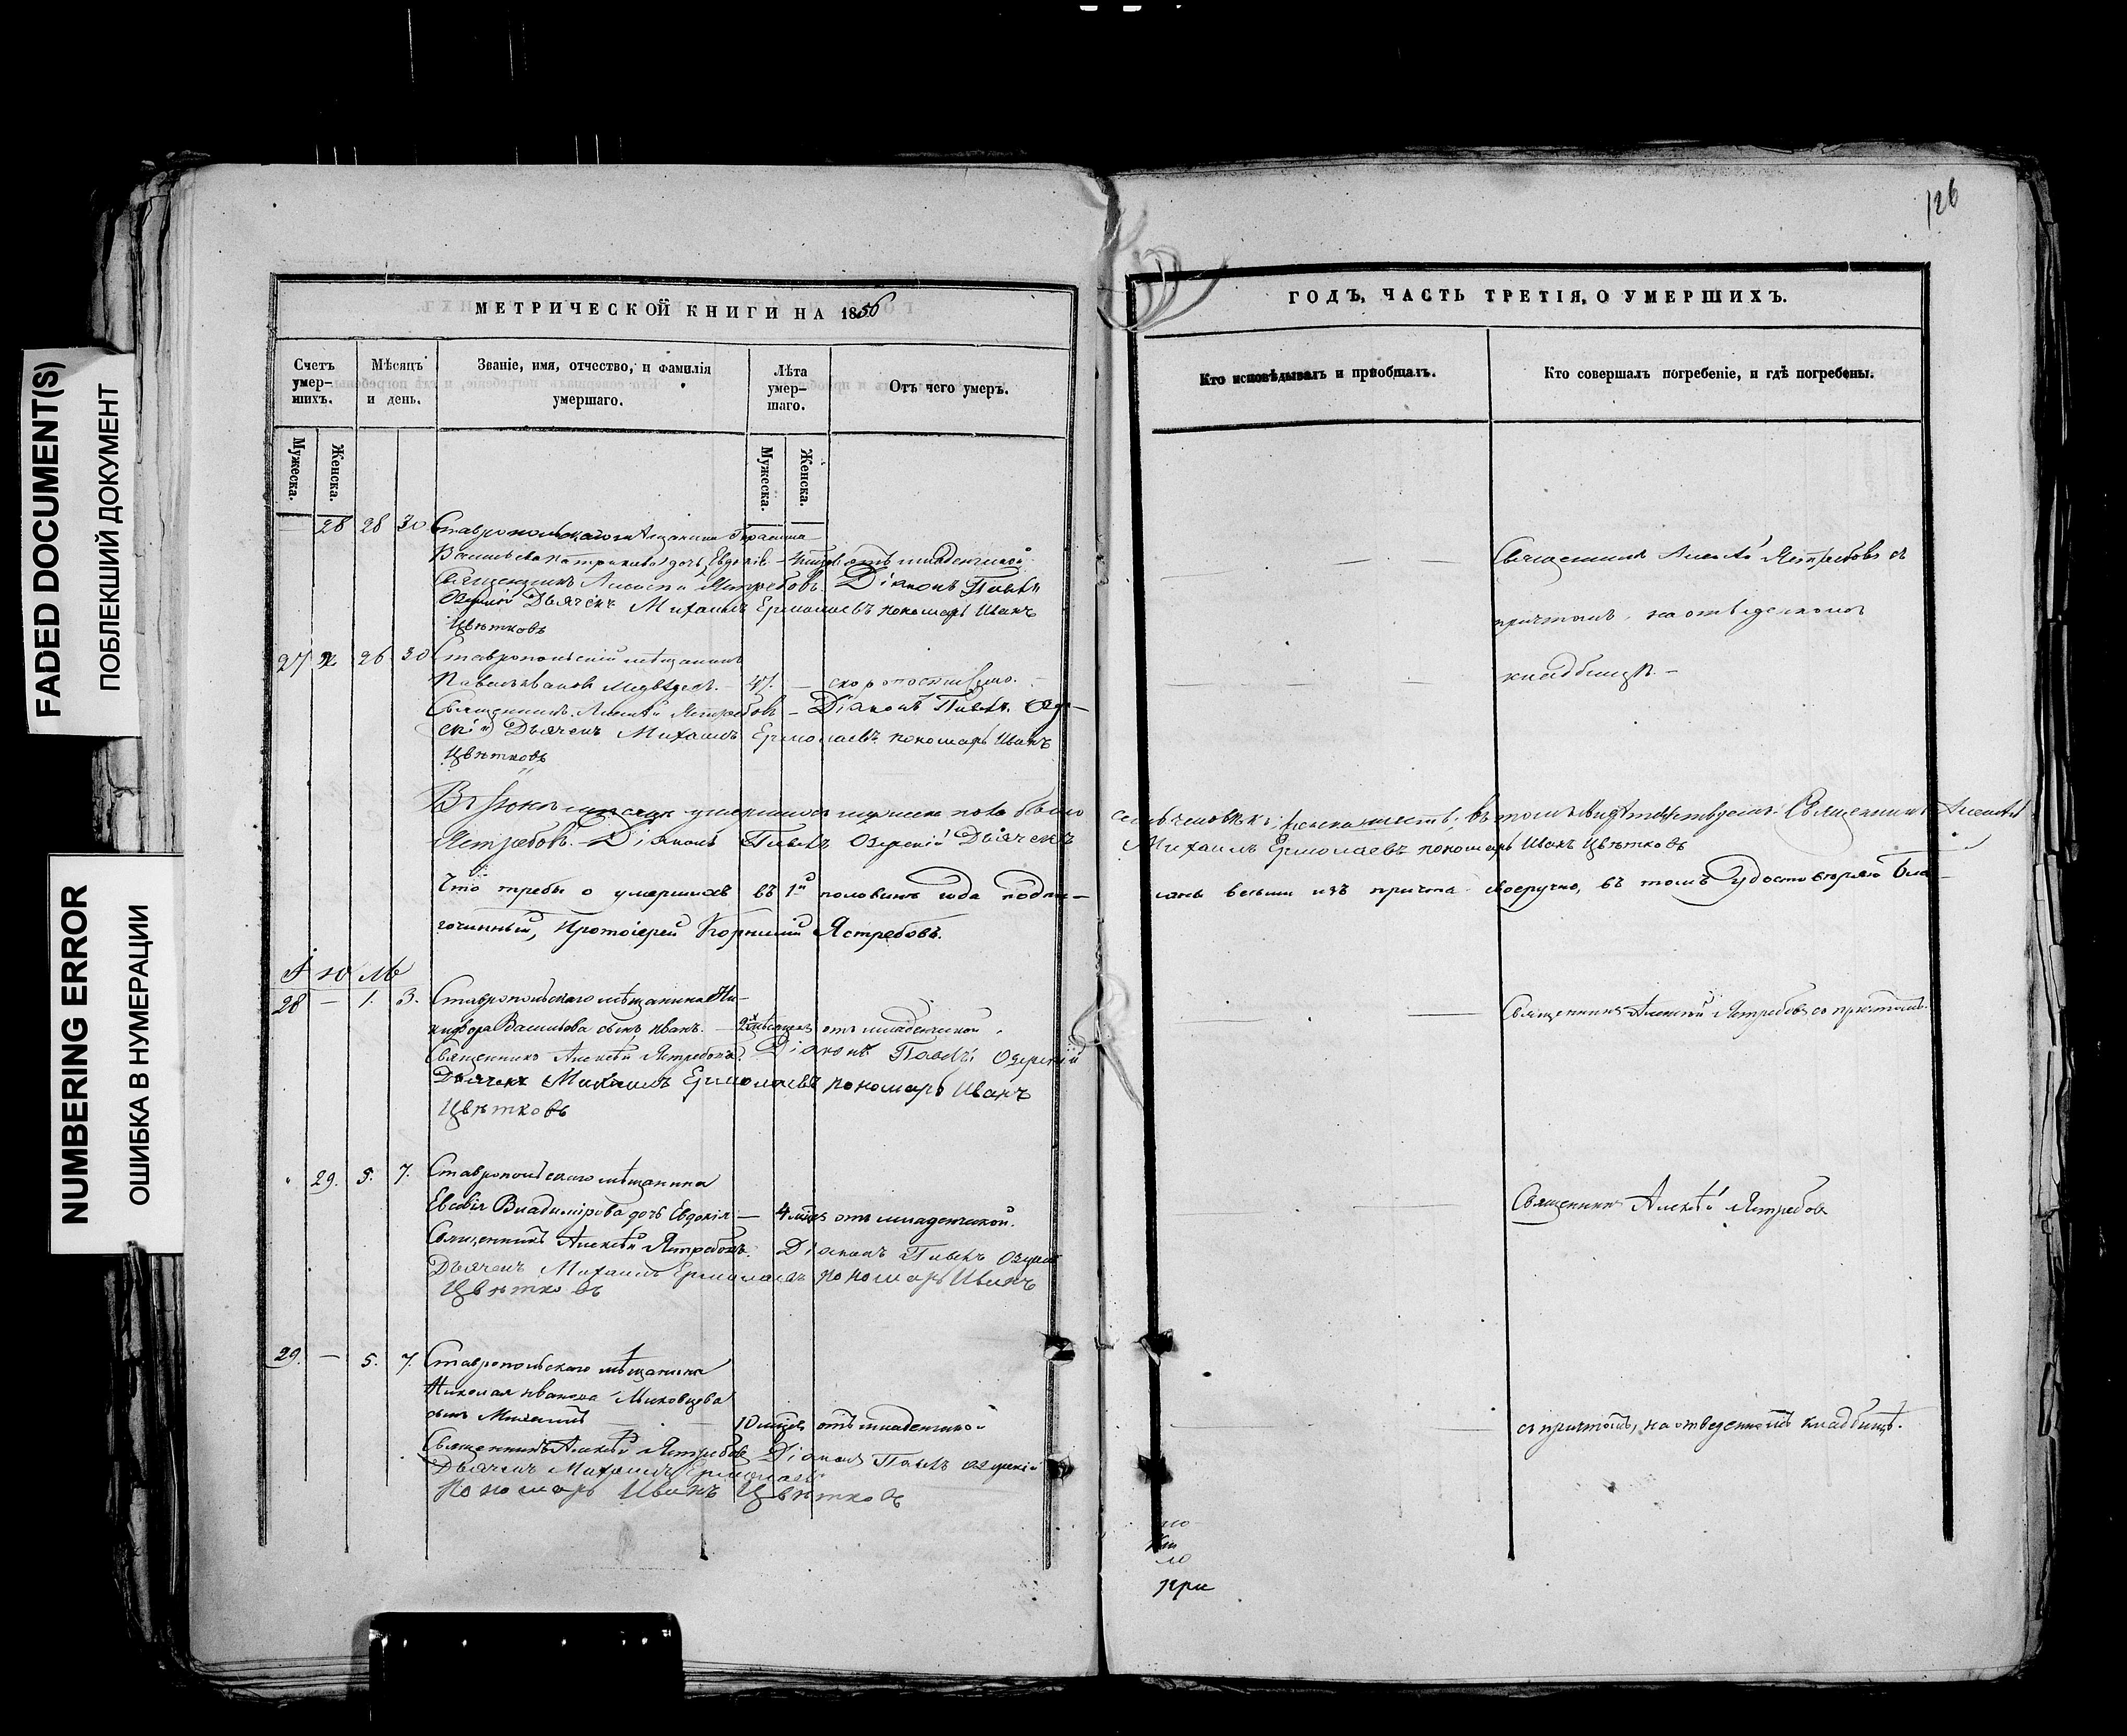 126
FADED DOCUMENT(S)
ПОБЛЕКШИЙ ДОКУМЕНТ
NUMBERING ERROR
ОШИБКА В НУМЕРАЦИИ
МЕТРИЧЕСКОЙ КНИГИ НА 1856
Счетъ умер-
шихъ.
Мѣсяцъ
и день.
Званіе, имя, отчество, и фамилія
умершаго.
Лѣта
умер-
шаго.
Отъ чего умеръ.
Мужеска.
Женска.
Мужеска.
Женска.
28 28 30 Ставропольскаго мѣщанина Герасима
дочь Евдокія — отъ младенческой
Священникъ Алексѣй Ястребовъ Діаконъ Павелъ
Озерскій Дьячекъ Михаилъ Ермолаевъ пономарь Иванъ
Цвѣтковъ
27 26 30 Ставропольскій мѣщанинъ
Павелъ Ивановъ Медвѣдевъ. — 47. — скоропостижно.
Священникъ Алексѣй Ястребовъ — Діаконъ Павелъ Озер—
скій Дьячекъ Михаилъ Ермолаевъ пономарь Иванъ
Цвѣтковъ
Въ Іюнѣ мѣсяцѣ умершихъ мужеска пола было
Ястребовъ. — Діаконъ Павелъ Озерскій Дьячекъ
Что требы о умершихъ въ 1й половинѣ года подпи—
гочинный, Протоіерей Корнилій Ястребовъ.
Іюль
28 — 1. 3. Ставропольскаго мѣщанина Ни—
кифора Васильева сынъ Иванъ. — отъ младенческой.
Священникъ Алексѣй Ястребовъ. Діаконъ Павелъ Озерскій
Дьячекъ Михаилъ Ермолаевъ пономарь Иванъ
Цвѣтковъ
29. 5. 7. Ставропольскаго мѣщанина
Владимірова дочь Евдокія — 4 отъ младенческой.
Священникъ Алексѣй Ястребовъ. Діаконъ Павелъ
Дьячекъ Михаилъ Ермолаевъ пономарь Иванъ
Цвѣтковъ
29. — 5. 7. Ставропольскаго мѣщанина
Николая Иванова
сынъ Михаилъ 10 отъ младенческой
Священникъ Алексѣй Ястребовъ Діаконъ Павелъ Озерскій
Дьячекъ Михаилъ Ермолаевъ
Пономарь Иванъ Цвѣтковъ
ГОДЪ, ЧАСТЬ ТРЕТІЯ, О УМЕРШИХЪ.
Кто исповѣдывалъ и пріобщалъ.
Кто совершалъ погребеніе, и гдѣ погребены.
Священникъ Алексѣй Ястребовъ съ
причтомъ, на отведенномъ
кладбищѣ. —
Священникъ Алексѣй
Михаилъ Ермолаевъ пономарь Иванъ Цвѣтковъ
саны всѣми изъ причта своеручно, въ томъ удостовѣряю Бла—
Священникъ Алексѣй Ястребовъ съ причтомъ.
Священникъ Алексѣй Ястребовъ
съ причтомъ, на отведенномъ кладбищѣ.
при